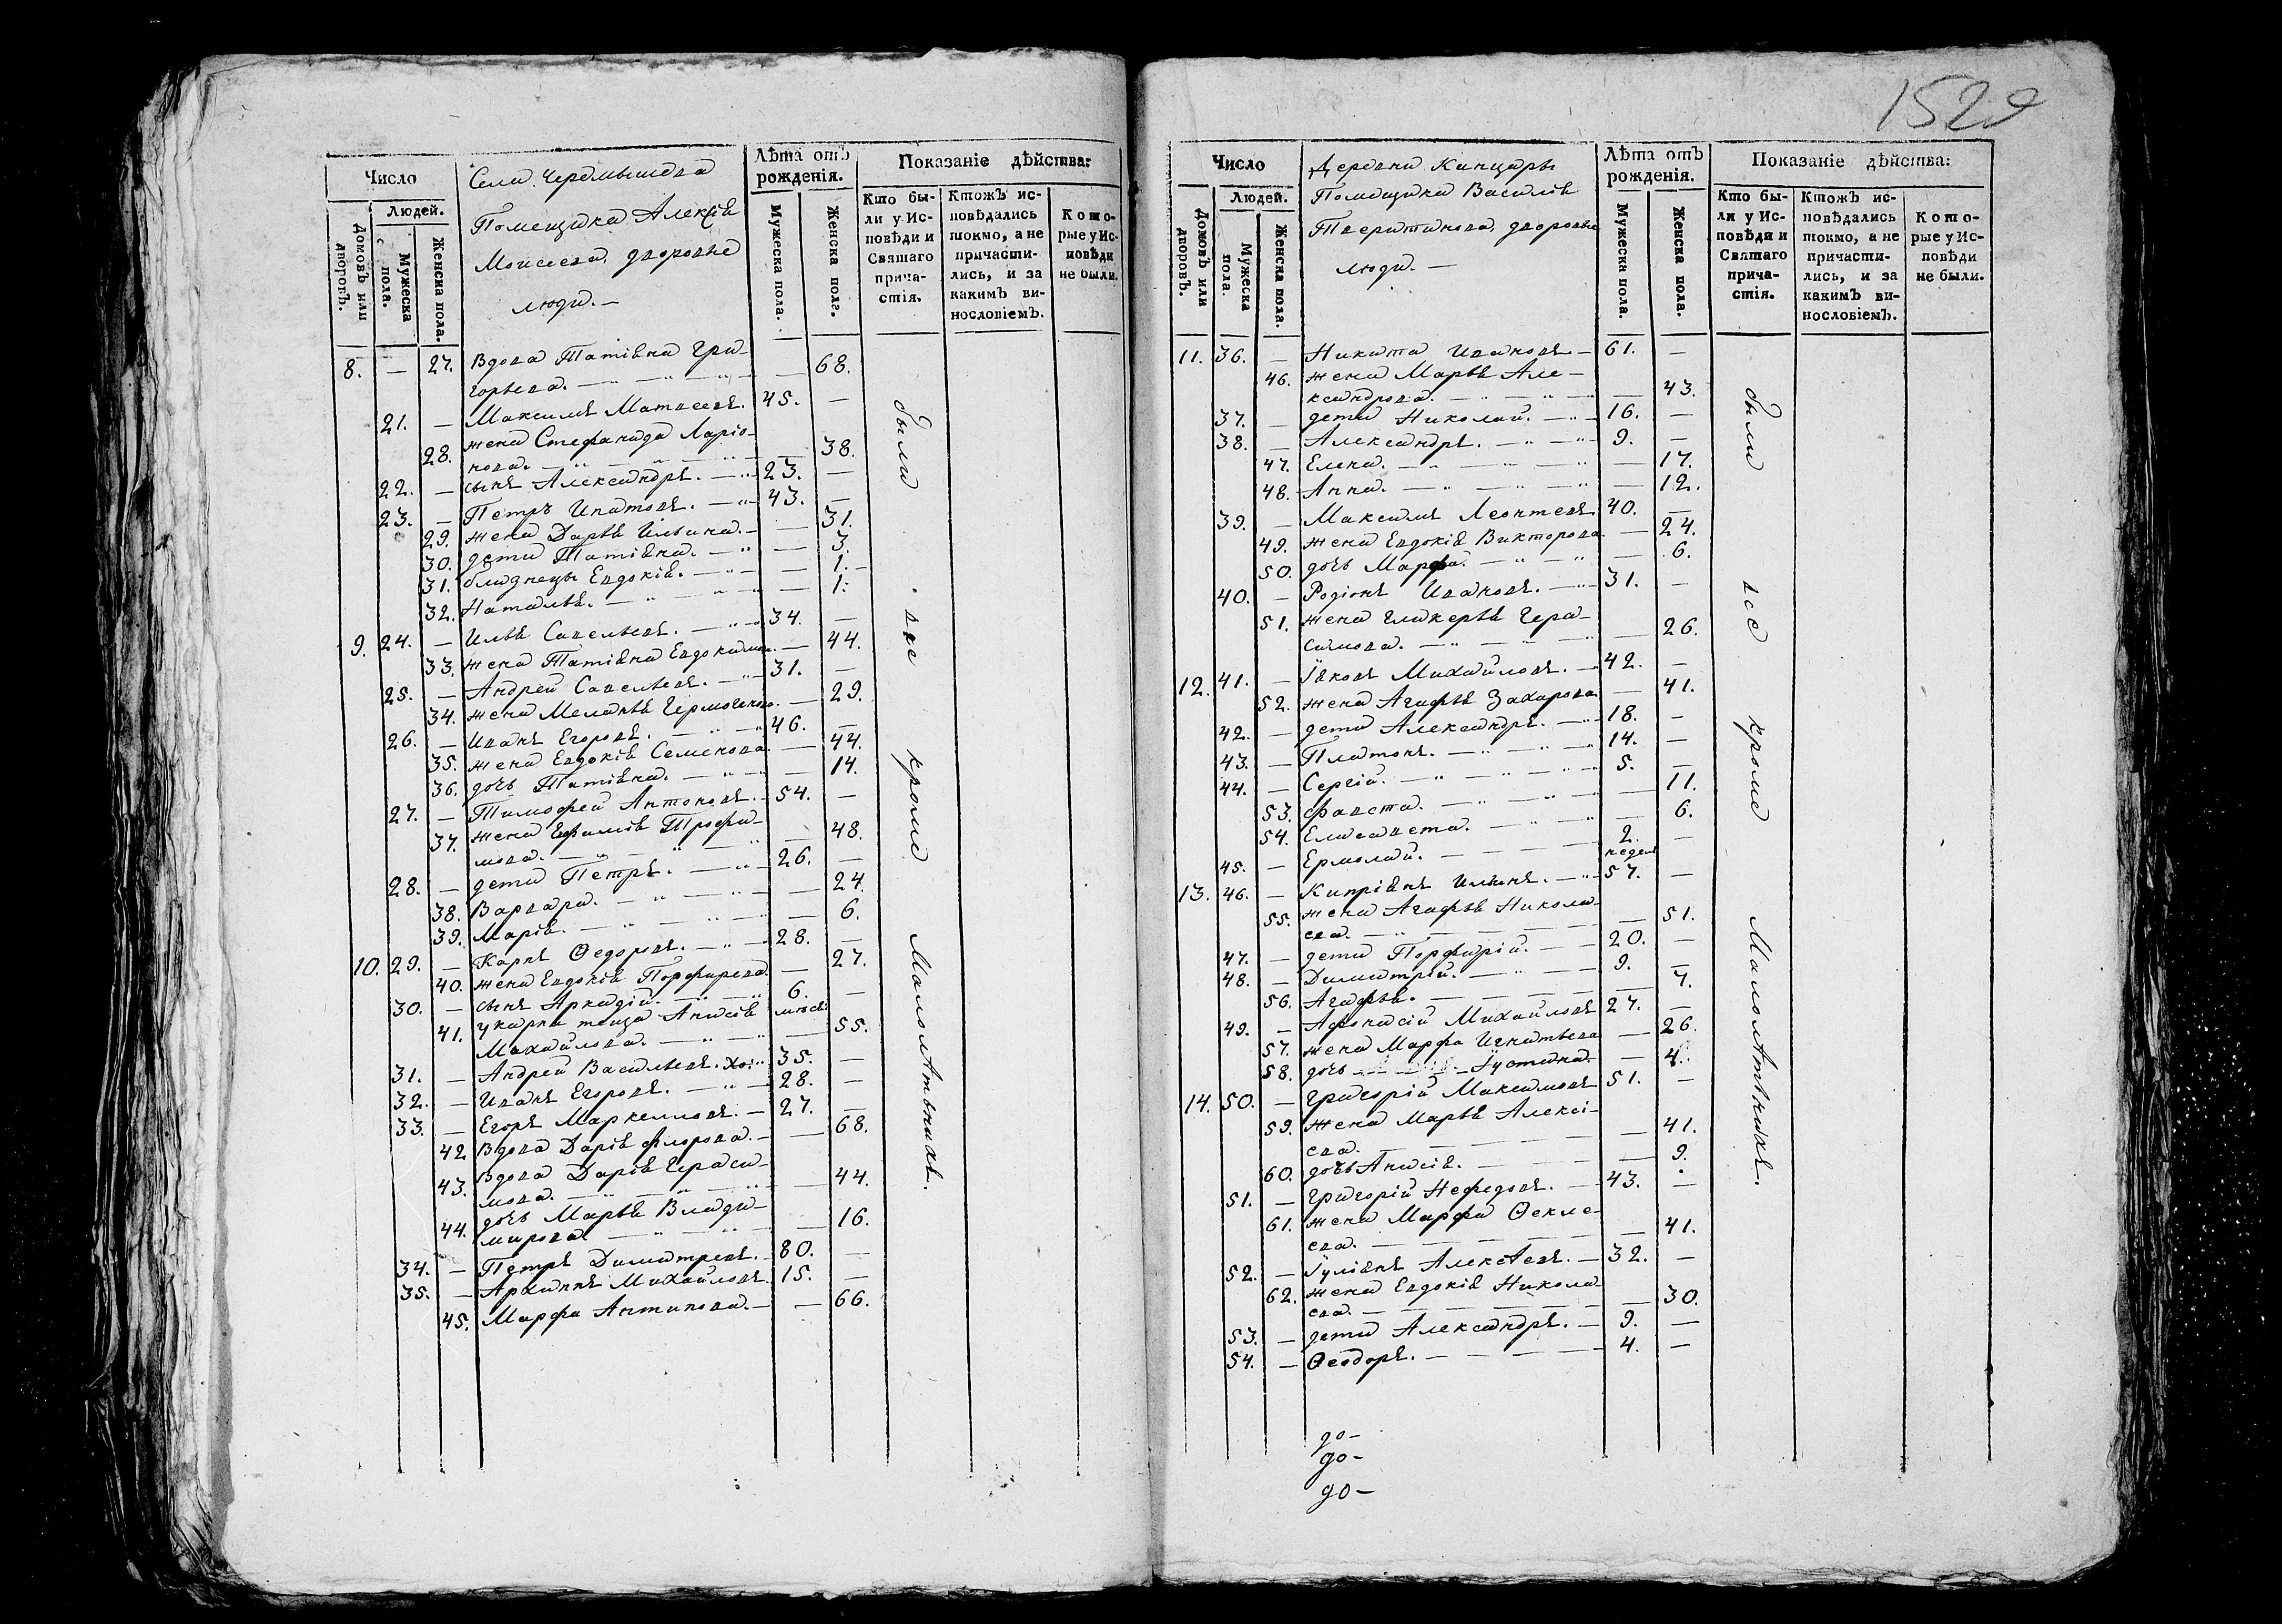 1529
Число
Села Черемышева
Помещика Алексѣя
Моисеева дворовые
люди. —
Лѣта отъ рожденія.
Показаніе дѣйства:
Домовъ или дворовъ.
Людей.
Мужеска пола.
Женска пола.
Мужеска пола.
Женска пола.
Кто бы-
ли у Ис-
повѣди и
Святаго
прича-
стія.
Ктожъ ис-
повѣдались
токмо, а не
причасти-
лись, и за
какимъ ви-
нословіемъ.
Кото-
рые у Ис-
повѣди
не были.
8. — 27. Вдова Татіяна Гри-
горьева. — 68.
21. — Максимъ Матвеевъ. 45. —
28. жена Стефанида Ларіо-
нова. — 38.
22. — сынъ Александръ. — 23. —
23. — Петръ Ипатовъ. — 43. —
29. жена Дарья Ильина. — 31.
30. дети Татіяна. — 3.
31. близнецы Евдокія. — 1.
32. Наталья. — 1.
9. 24. — Илья Савельевъ. — 34. —
33. жена Татіяна Евдокимова. — 44.
25. — Андрей Савельевъ. — 31. —
34. жена Меланья Гермогенова. — 29.
26. — Иванъ Егоровъ. — 46. —
35. жена Евдокія Семенова. — 44.
36. дочь Татіяна. — 14.
27. — Тимофей Антоновъ. — 54. —
37. жена Ефимія Трофи-
мова. — 48.
28. — дети Петръ. — 26. —
38. Варвара. — 24.
39. Марія. — 6.
10. 29. — Карпъ Ѳедоровъ. — 28. —
40. жена Евдокія Порфирева. — 27.
30. — сынъ Аркадій. — 6. месяц. —
41. У карпа теща Анисія
Михайлова. — 55.
31. — Андрей Васильевъ. Хол. 35. —
32. — Иванъ Егоровъ. — 28. —
33. — Егоръ Маркелловъ. — 27. —
42. Вдова Дарія Флорова. — 68.
43. Вдова Дарія Гераси-
мова. — 44.
44. дочь Марья Влади-
мирова — 16.
34. — Петръ Димитревъ. — 80. —
35. — Архиппъ Михайловъ. 15. —
45. Марфа Антипова. — 66.
были все кроме Малолѣтныхъ.
Число
Деревни Канцары
Помещика Василія
Тверитинова дворовые
люди. —
Лѣта отъ рожденія.
Показаніе дѣйства:
Домовъ или дворовъ.
Людей.
Мужеска пола.
Женска пола.
Мужеска пола.
Женска пола.
Кто бы-
ли у Ис-
повѣди и
Святаго
прича-
стія.
Ктожъ ис-
повѣдались
токмо, а не
причасти-
лись, и за
какимъ ви-
нословіемъ.
Кото-
рые у Ис-
повѣди
не были.
11. 36. — Никита Ивановъ — 61. —
46. жена Марья Але-
ксандрова. — 43.
37. — дети Николай. — 16. —
38. — Александръ. — 9. —
47. Елена. — 17.
48. Анна. — 12.
39. — Максимъ Леонтевъ 40. —
49. жена Евдокія Викторова. — 24.
50. дочь Марфа. — 6.
40. — Родіонъ Ивановъ. — 31. —
51. жена Гликерья Гера-
симова. — 26.
12. 41. — Іяковъ Михайловъ. — 42. —
52. жена Агафья Захарова — 41.
42. — дети Александръ. — 18. —
43. — Платонъ. — 14. —
44. — Сергій. — 5. —
53. Фавста. — 11.
54. Елисавета. — 6.
45. — Ермолай. — 2. недели —
13. 46. — Кипріянъ Ильинъ. — 57. —
55. жена Агафья Никола-
ева. — 51.
47. — дети Порфирій. — 20. —
48. — Димитрій. — 9. —
56. Агафья. — 7.
49. — Афонасій Михайловъ 27. —
57. жена Марфа Игнатьева — 26.
58. дочь — Іустина. — 4.
14. 50. — Григорій Максимовъ 51. —
59. жена Марья Алексі-
ева. — 41.
60. дочь Анисія. — 9.
51. — Григорій Нефедовъ. — 43. —
61. жена Марфа Ѳекле-
ева. — 41.
52. — Іуліянъ Алексѣевъ. — 32. —
62. жена Евдокія Никола-
ева. — 30.
53. — дети Александръ. — 9. —
54. — Ѳеодоръ. — 4. —
были все кроме Малолѣтныхъ.
до-
до-
до-